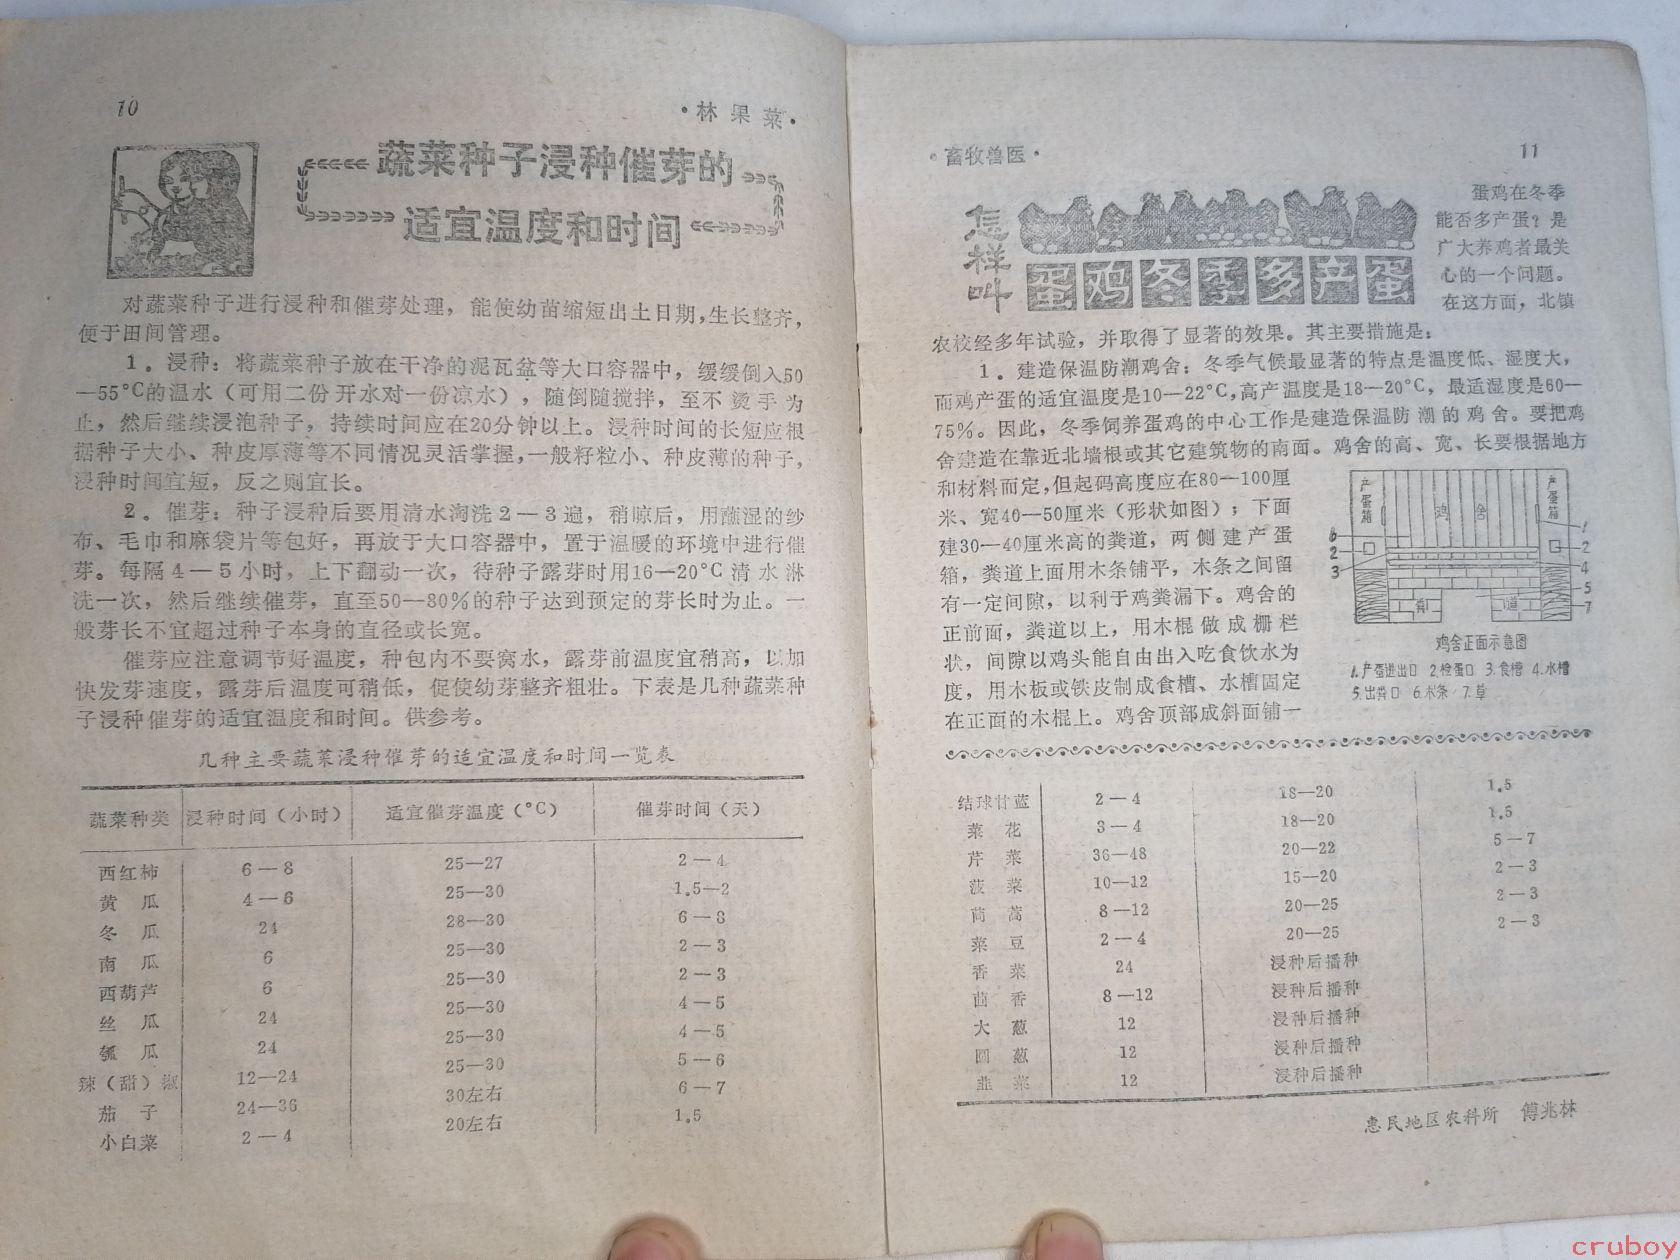 10
·林果菜·
蔬菜种子浸种催芽的
适宜温度和时间
对蔬菜种子进行浸种和催芽处理，能使幼苗缩短出土日期，生长整齐，
便于田间管理。
1。浸种：将蔬菜种子放在干净的泥瓦盆等大口容器中，缓缓倒入50
—55°C的温水（可用二份开水对一份凉水），随倒随搅拌，至不烫手为
止，然后继续浸泡种子，持续时间应在20分钟以上。浸种时间的长短应根
据种子大小、种皮厚薄等不同情况灵活掌握，一般籽粒小、种皮薄的种子，
浸种时间宜短，反之则宜长。
2。催芽：种子浸种后要用清水淘洗2—3遍，稍晾后，用蘸湿的纱
布、毛巾和麻袋片等包好，再放于大口容器中，置于温暖的环境中进行催
芽。每隔4—5小时，上下翻动一次，待种子露芽时用16—20°C清水淋
洗一次，然后继续催芽，直至50—80%的种子达到预定的芽长时为止。一
般芽长不宜超过种子本身的直径或长宽。
催芽应注意调节好温度，种包内不要窝水，露芽前温度宜稍高，以加
快发芽速度，露芽后温度可稍低，促使幼芽整齐粗壮。下表是几种蔬菜种
子浸种催芽的适宜温度和时间。供参考。
几种主要蔬菜浸种催芽的适宜温度和时间一览表
蔬菜种类 浸种时间（小时） 适宜催芽温度（°C） 催芽时间（天）
西红柿 6—8 25—27 2—4
黄瓜 4—6 25—30 1.5—2
冬瓜 24 28—30 6—8
南瓜 6 25—30 2—3
西葫芦 6 25—30 2—3
丝瓜 24 25—30 4—5
瓠瓜 24 25—30 4—5
辣（甜）椒 12—24 25—30 5—6
茄子 24—36 30左右 6—7
小白菜 2—4 20左右 1.5
·畜牧兽医·
11
怎样叫
蛋鸡冬季多产蛋
蛋鸡在冬季
能否多产蛋？是
广大养鸡者最关
心的一个问题。
在这方面，北镇
农校经多年试验，并取得了显著的效果。其主要措施是：
1。建造保温防潮鸡舍：冬季气候最显著的特点是温度低、湿度大，
而鸡产蛋的适宜温度是10—22°C，高产温度是18—20°C，最适湿度是60—
75%。因此，冬季饲养蛋鸡的中心工作是建造保温防潮的鸡舍。要把鸡
舍建造在靠近北墙根或其它建筑物的南面。鸡舍的高、宽、长要根据地方
和材料而定，但起码高度应在80—100厘
米、宽40—50厘米（形状如图）；下面
建30—40厘米高的粪道，两侧建产蛋
箱，粪道上面用木条铺平，木条之间留
有一定间隙，以利于鸡粪漏下。鸡舍的
正前面，粪道以上，用木棍做成栅栏
状，间隙以鸡头能自由出入吃食饮水为
度，用木板或铁皮制成食槽、水槽固定
在正面的木棍上。鸡舍顶部成斜面铺一
产蛋箱 鸡舍 产蛋箱
6
2
3
1
2
4
5
7
粪道
鸡舍正面示意图
1.产蛋进出口 2.检蛋口 3.食槽 4.水槽
5.出粪口 6.木条 7.草
结球甘蓝 2—4 18—20 1.5
菜花 3—4 18—20 1.5
芹菜 36—48 20—22 5—7
菠菜 10—12 15—20 2—3
茼蒿 8—12 20—25 2—3
菜豆 2—4 20—25 2—3
香菜 24 浸种后播种
茴香 8—12 浸种后播种
大葱 12 浸种后播种
圆葱 12 浸种后播种
韭菜 12 浸种后播种
惠民地区农科所 傅兆林
cruboy